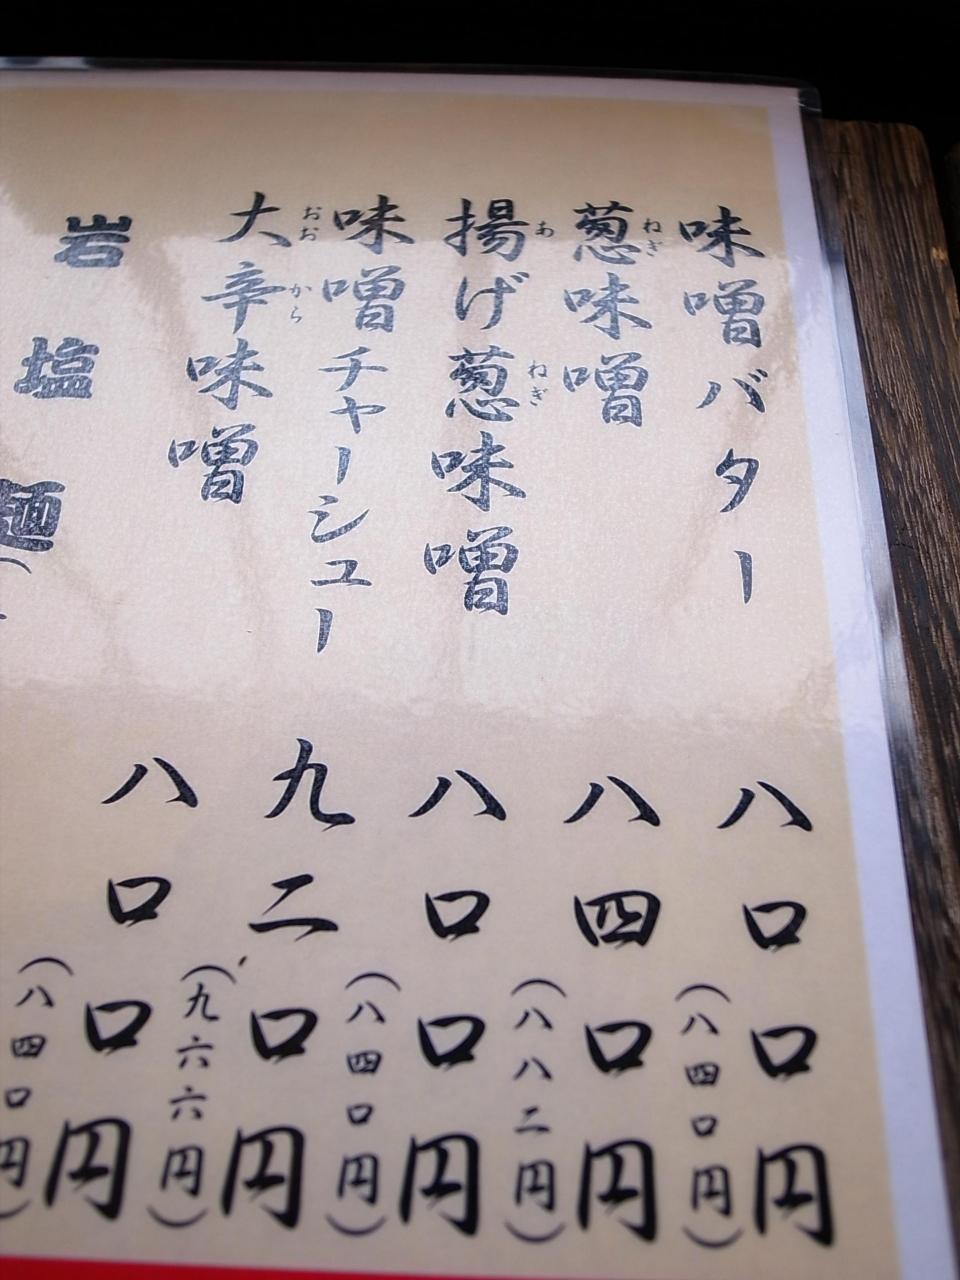 味噌バター 八〇〇円(八四〇円)
葱味噌 八四〇円(八八二円)
ねぎ
揚げ葱味噌 八〇〇円(八四〇円)
あ ねぎ
味噌チャーシュー 九二〇円(九六六円)
大辛味噌 八〇〇円(八四〇円)
おお から
岩塩麺